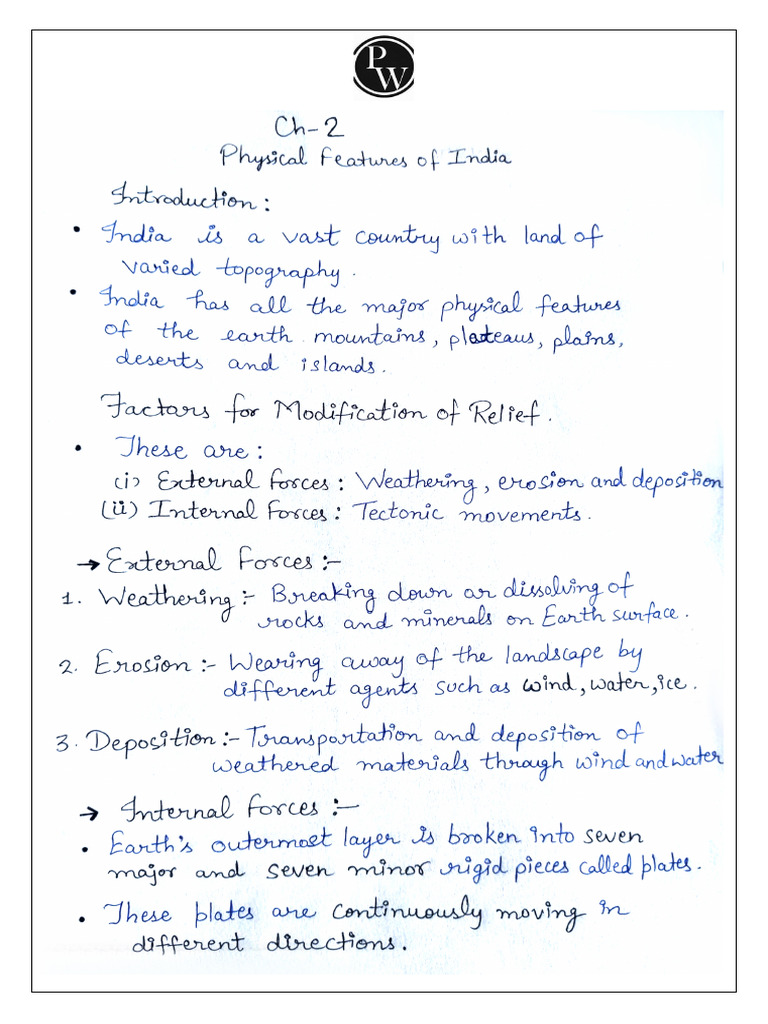 PW
Ch-2
Physical Features of India
Introduction:
• India is a vast country with land of
varied topography.
• India has all the major physical features
of the earth mountains, plateaus, plains,
deserts and islands.
Factors for Modification of Relief.
• These are:
(i) External Forces: Weathering, erosion and deposition
(ii) Internal Forces: Tectonic movements.
→ External Forces:-
1. Weathering:- Breaking down or dissolving of
rocks and minerals on Earth surface.
2. Erosion:- Wearing away of the landscape by
different agents such as wind, water, ice.
3. Deposition:- Transportation and deposition of
weathered materials through wind and water
→ Internal Forces:-
• Earth's outermost layer is broken into seven
major and seven minor rigid pieces called plates.
• These plates are continuously moving in
different directions.